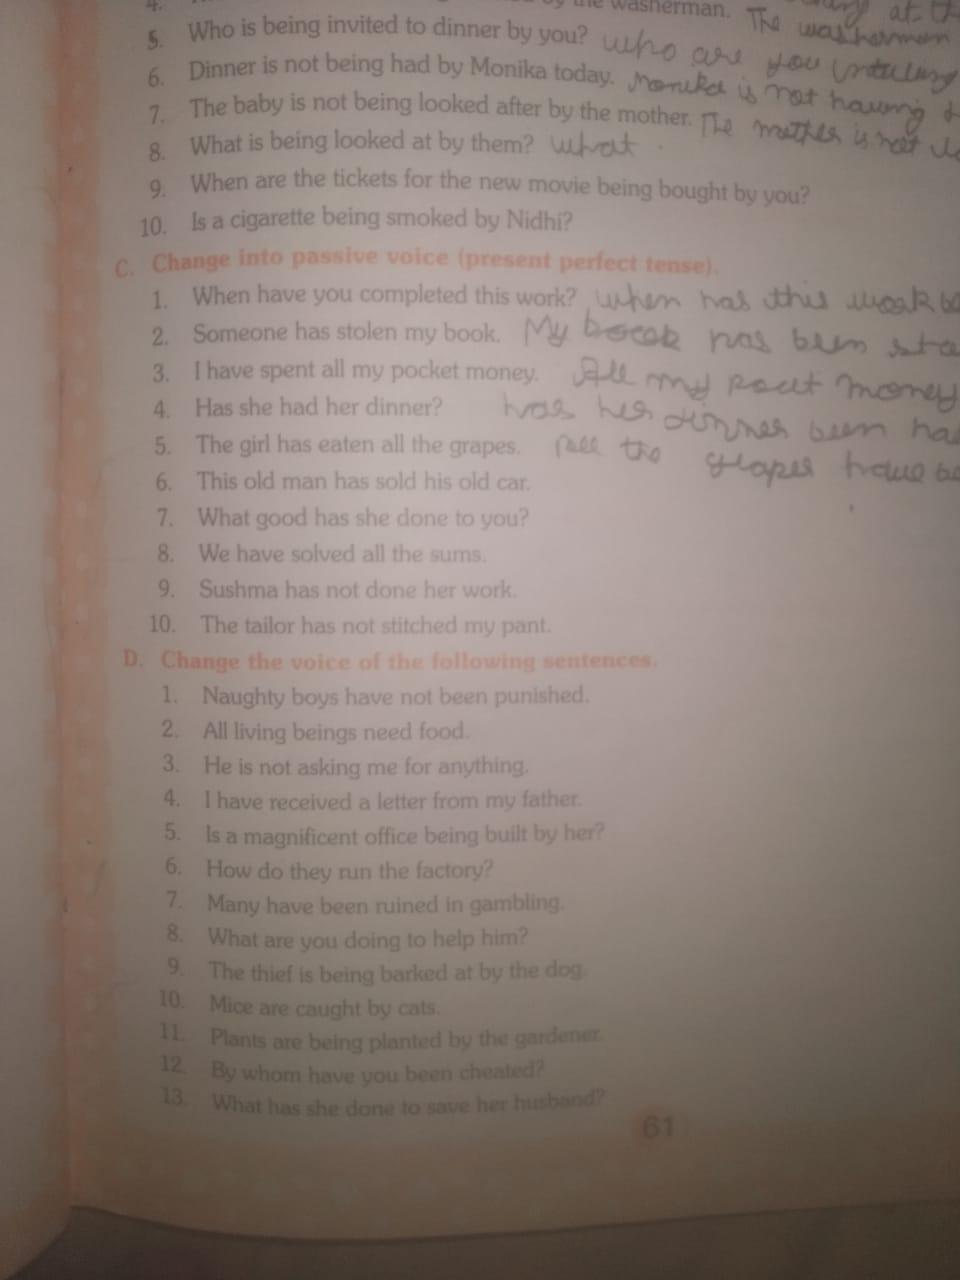 4. by the washerman. The washerman at the
5. Who is being invited to dinner by you? who are you
6. Dinner is not being had by Monika today. Monika is not having
7. The baby is not being looked after by the mother. The mother is not
8. What is being looked at by them? what
9. When are the tickets for the new movie being bought by you?
10. Is a cigarette being smoked by Nidhi?
C. Change into passive voice (present perfect tense).
1. When have you completed this work? when has this work
2. Someone has stolen my book. My book has been
3. I have spent all my pocket money. All my money
4. Has she had her dinner? has her dinner been
5. The girl has eaten all the grapes. the grapes have
6. This old man has sold his old car.
7. What good has she done to you?
8. We have solved all the sums.
9. Sushma has not done her work.
10. The tailor has not stitched my pant.
D. Change the voice of the following sentences.
1. Naughty boys have not been punished.
2. All living beings need food.
3. He is not asking me for anything.
4. I have received a letter from my father.
5. Is a magnificent office being built by her?
6. How do they run the factory?
7. Many have been ruined in gambling.
8. What are you doing to help him?
9. The thief is being barked at by the dog.
10. Mice are caught by cats.
11. Plants are being planted by the gardener.
12. By whom have you been cheated?
13. What has she done to save her husband?
61